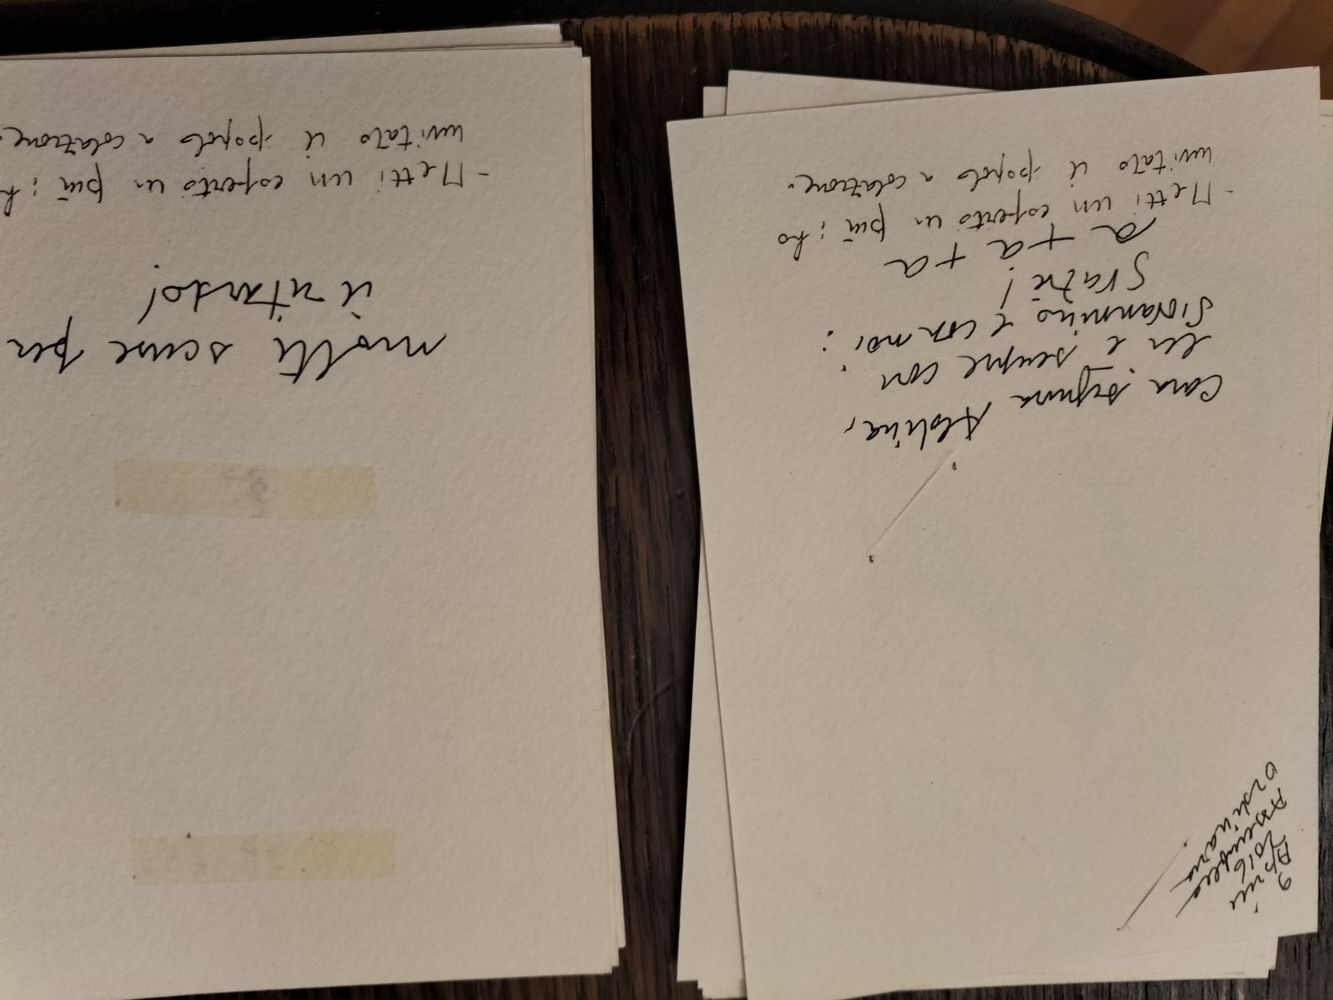 molte scuse per
il ritardo!
- Metti un coperto in più: ho
invitato il popolo a colazione.
9
Aprile
2016
Assemblea
ordinaria
Cara signora
lei è sempre con
Giovannino e con noi:
Grazie!
a + a + a
- Metti un coperto in più: ho
invitato il popolo a colazione.